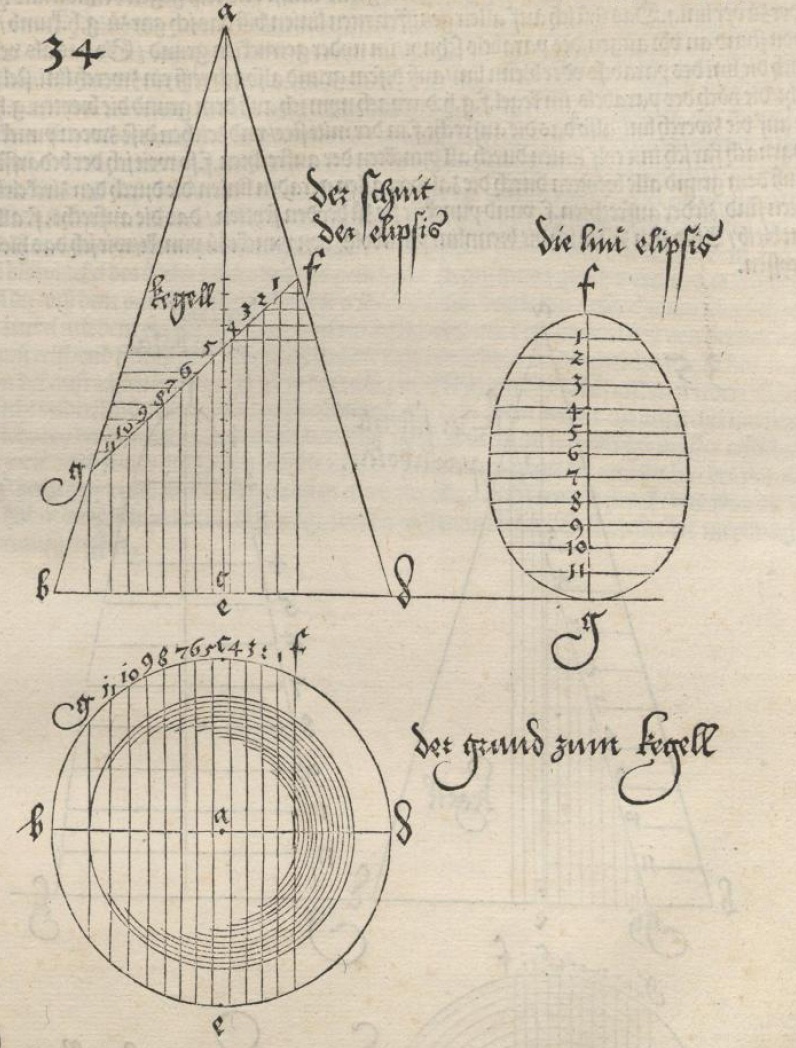 34
a
der schnit
der elipsis
f
kegell
1
2
3
4
5
6
7
8
9
10
11
g
b
c
e
d
die lini elipsis
f
1
2
3
4
5
6
7
8
9
10
11
g
g 11 10 9 8 7 6 5 c 4 3 2 1 f
b a d
e
der grund zum kegell